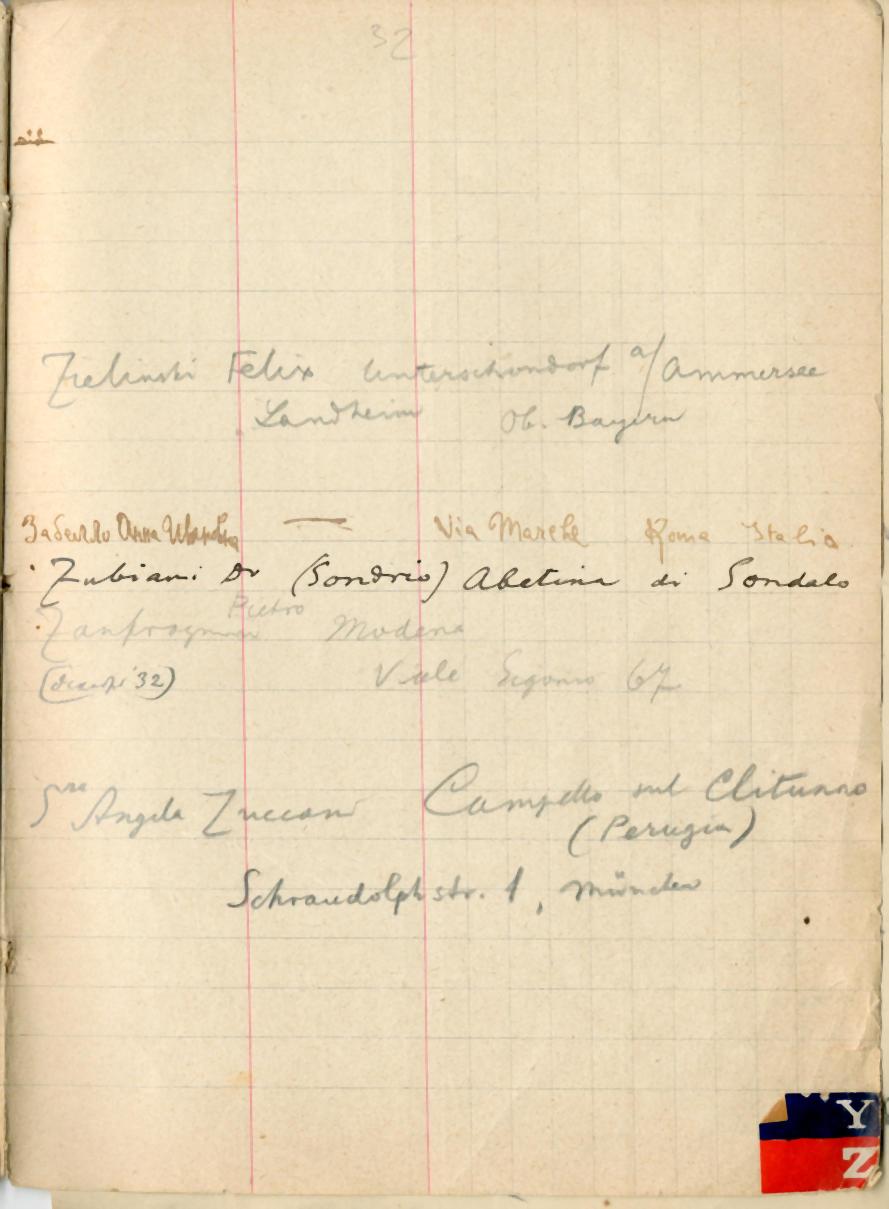 32
Zielinski Felix Unterschondorf a/Ammersee
Landheim Ob. Bayern
Anna Via Marche Roma Italia
Zubiani Dr (Sondrio) Abetina di Sondalo
Pietro
Modena
32) Viale Sigonio 67
Sra Angela Zuccani Campello sul Clitunno
(Perugia)
Schraudolphstr. 1, München
Y
Z